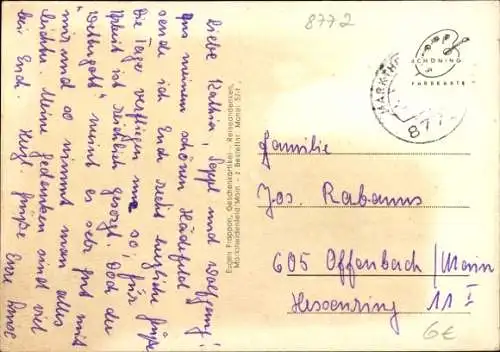 8772
Liebe Kathia, Seppl und Wolfgang!
Aus meinem schönen Hädefeld
sende ich Euch recht herzliche Grüße
Die Tage verfliegen nur so, für
Arbeit ist reichlich gesorgt. Doch der
"Wettergott" meint es sehr gut mit
mir und so nimmt man alles
leichter. Meine Gedanken sind viel
bei Euch. Herzl. Grüße Eure
Eugen Prappon, Geschenkartikel - Reiseandenken,
Marktheidenfeld/Main - 2. Bestellnr. Marol 57-f
SCHÖNING
FARBKARTE
MARKTHE
877
Familie
Jos. Rabanus
605 Offenbach/Main
Hessenring 11 I
6€